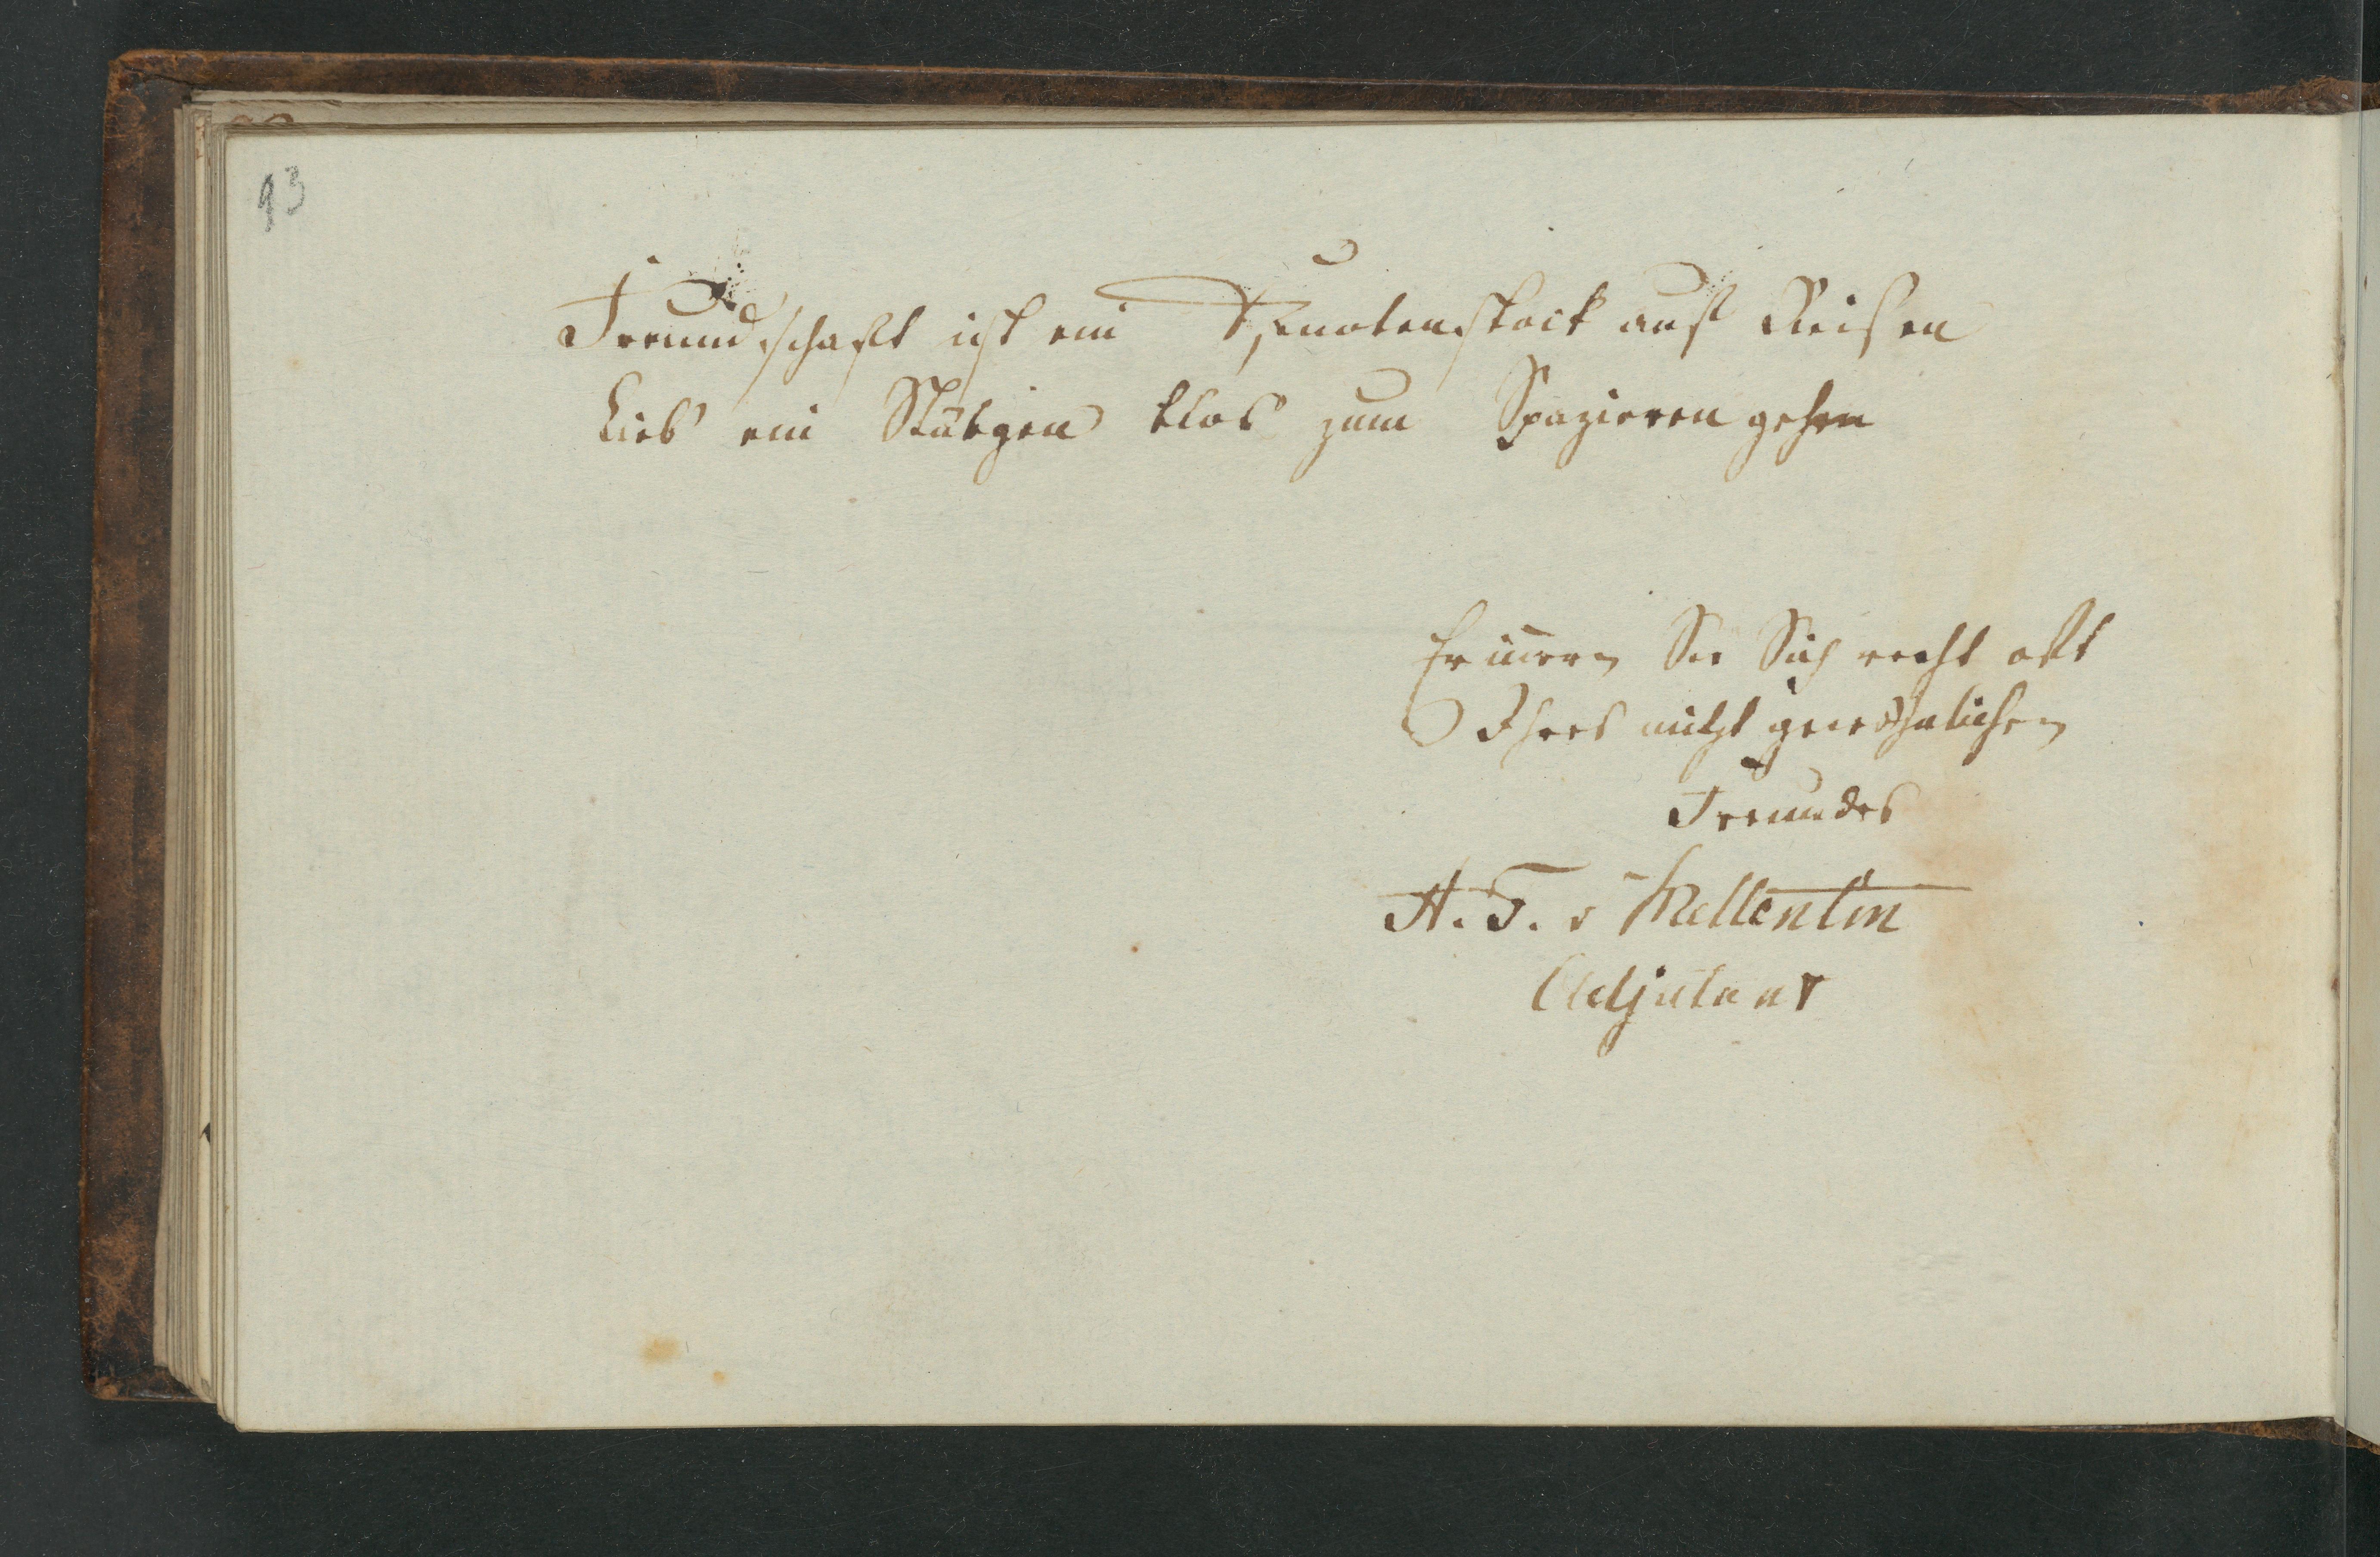 93
Freundschaft ist ein Knotenstock auf Reisen
Lieb ein Stäbgen blos zum Spazieren gehen
Erinern Sie Sich recht oft
Ihres nicht gewöhnlichen
Freundes
A. F. v Mellentin
Adjutant